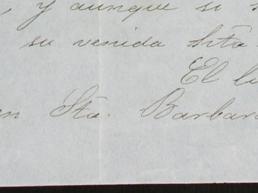 , y aunque si
su venida Sta.
El
en Sta. Barbara